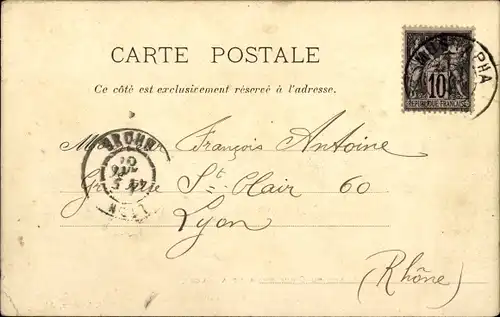 CARTE POSTALE
Ce côté est exclusivement réservé à l'adresse.
10
RÉPUBLIQUE FRANÇAISE
François Antoine
St Clair 60
Lyon
(Rhône)